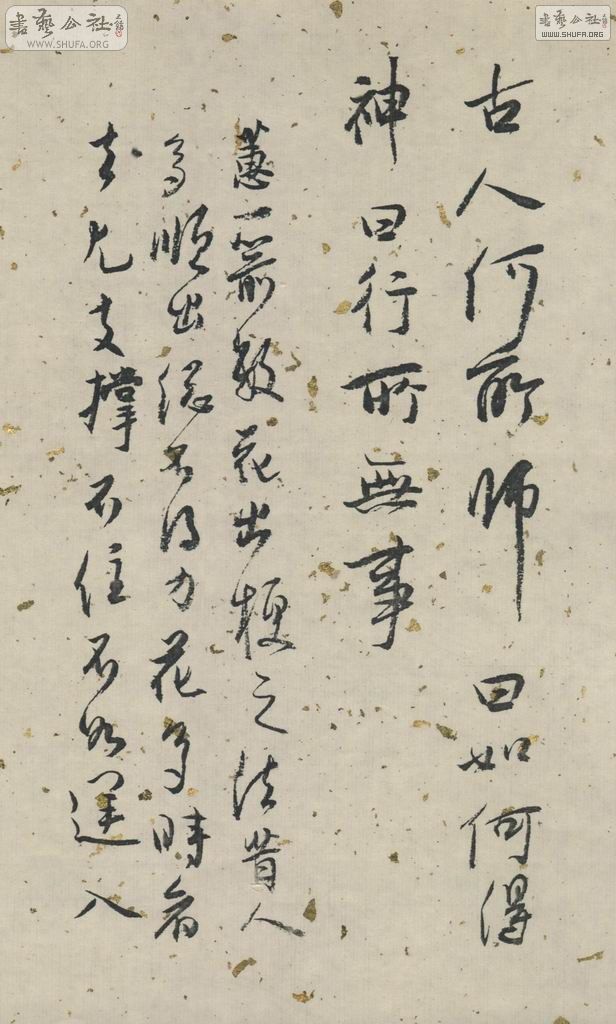 書藝公社
WWW.SHUFA.ORG
書藝公社
WWW.SHUFA.ORG
古人何所師曰如何得
神曰行所無事
蕙一箭數花出梗之法昔人
多順出總不得力花多時看
去尤支撐不住不如逆入